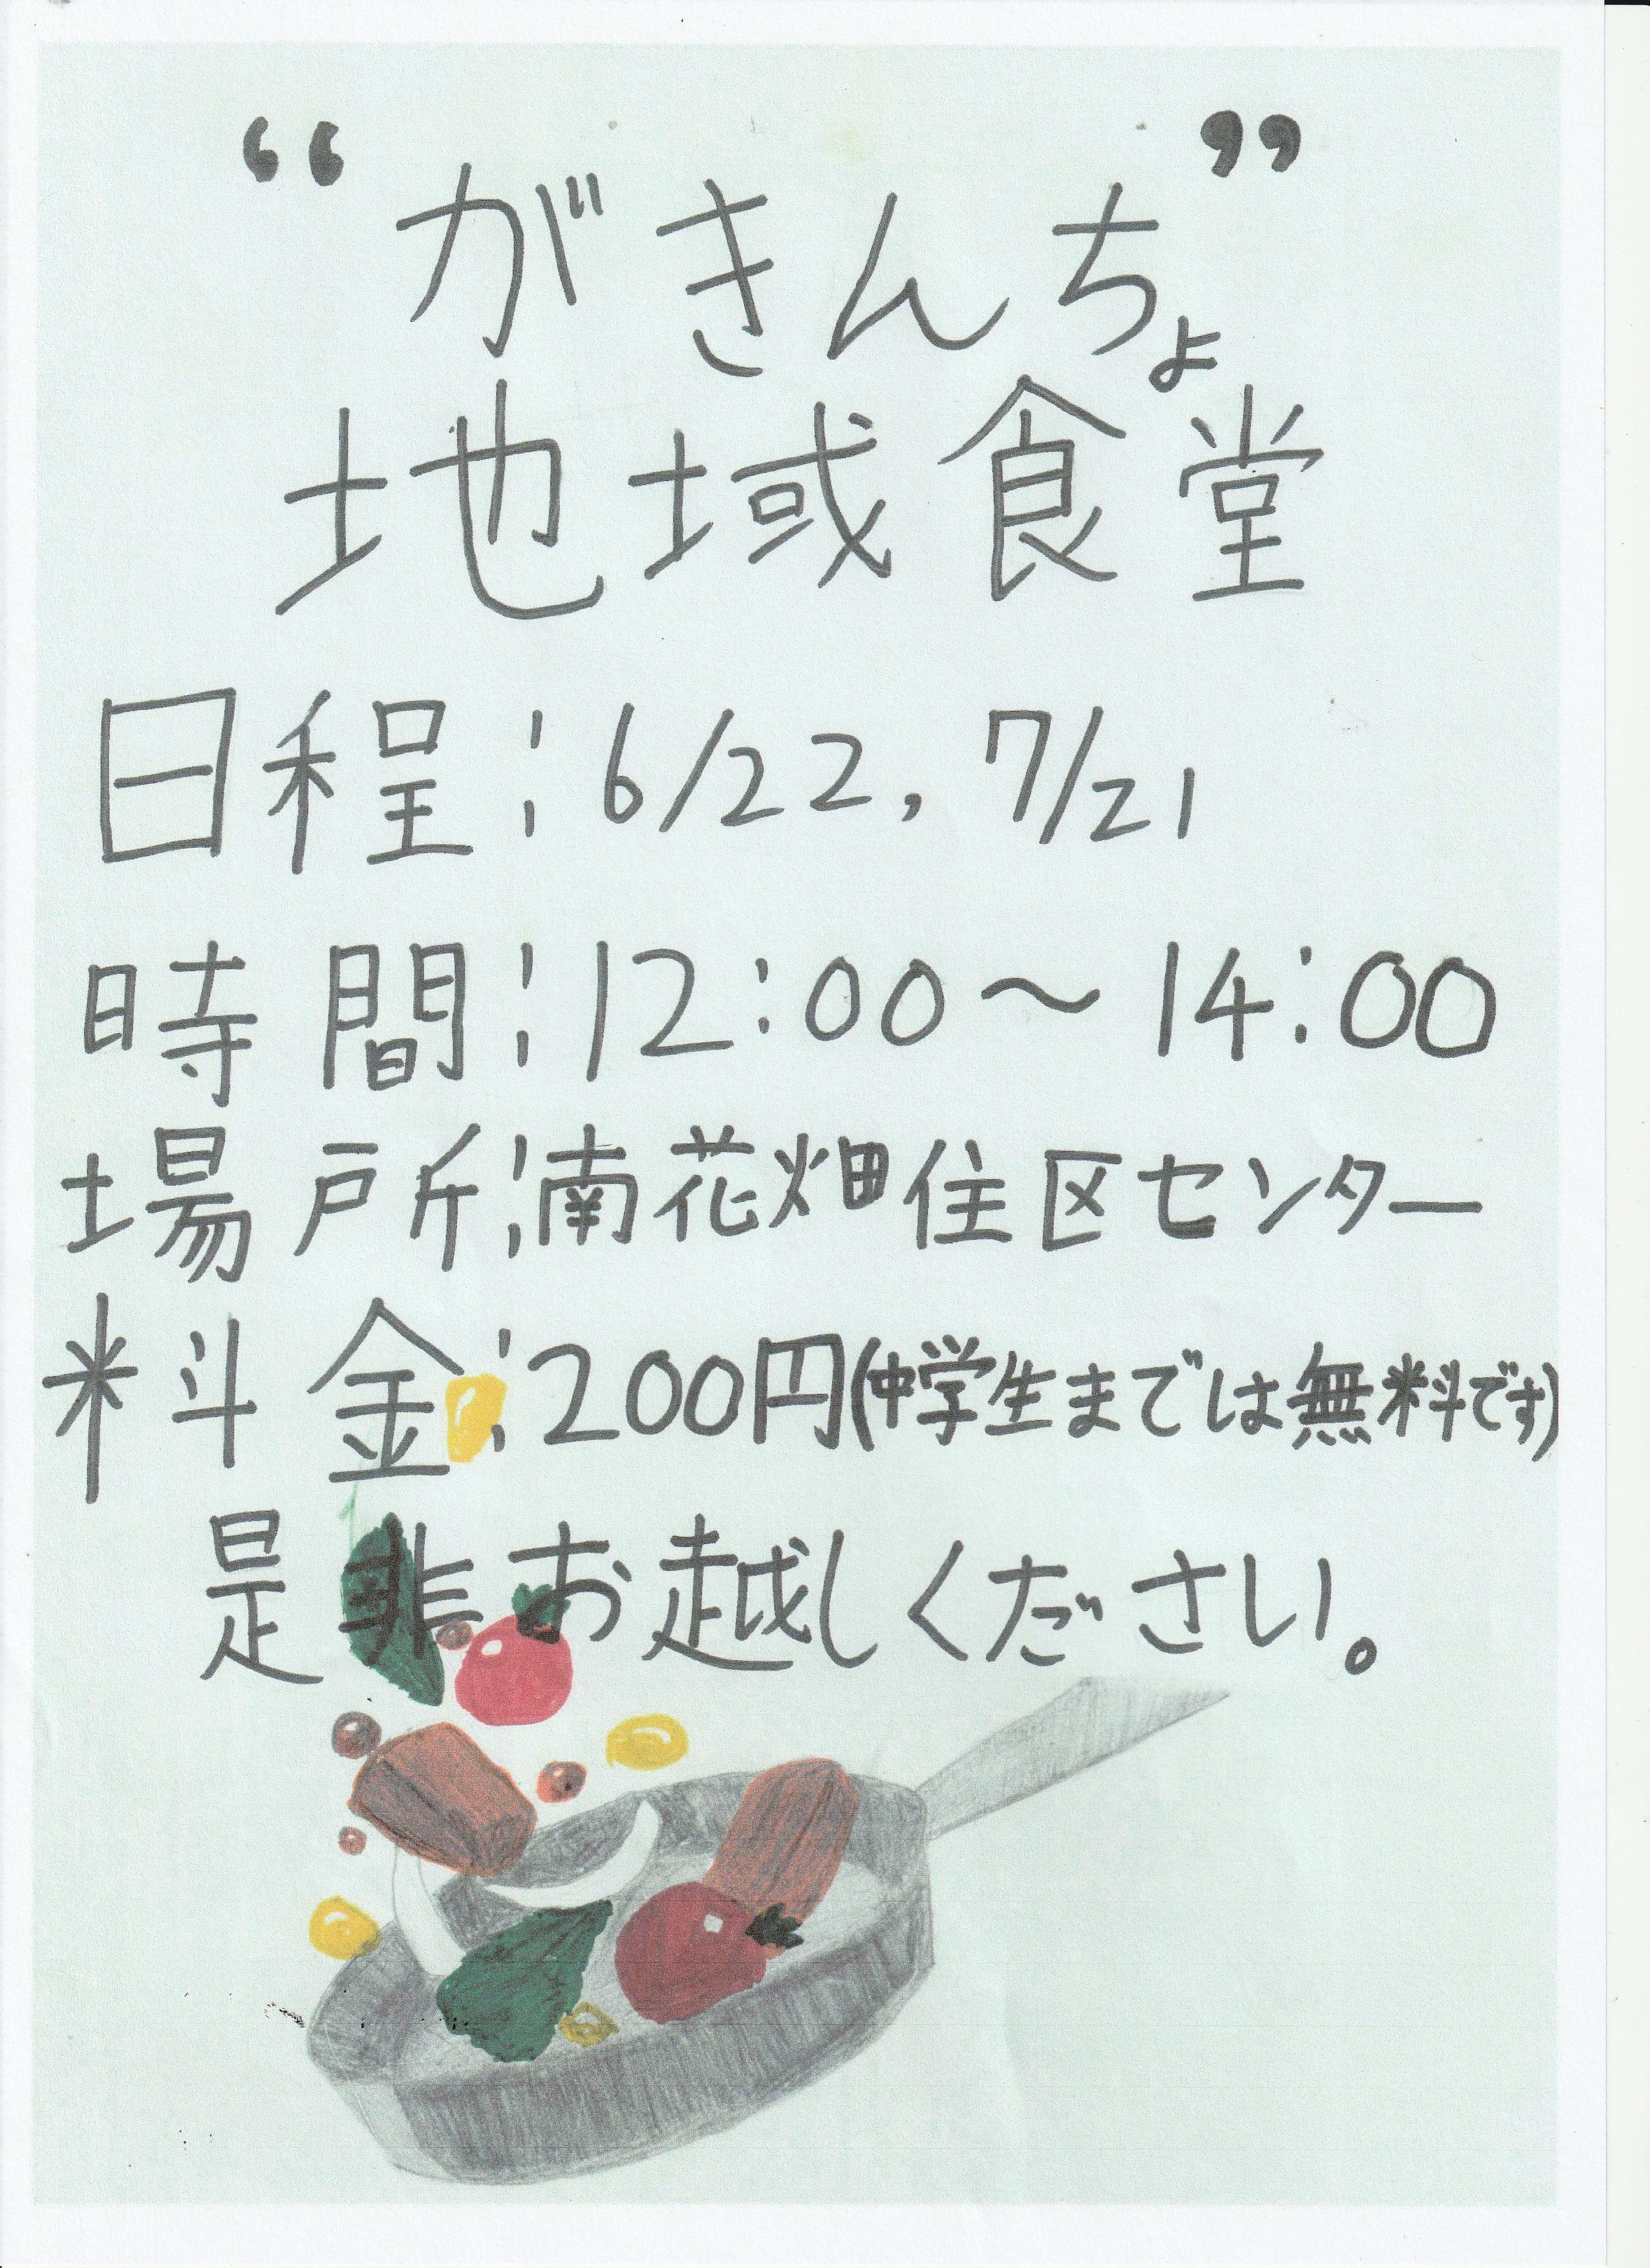 “がきんちょ”
地域食堂
日程：6/22, 7/21
時間：12:00～14:00
場所：南花畑住区センター
料金：200円(中学生までは無料です)
是非お越しください。